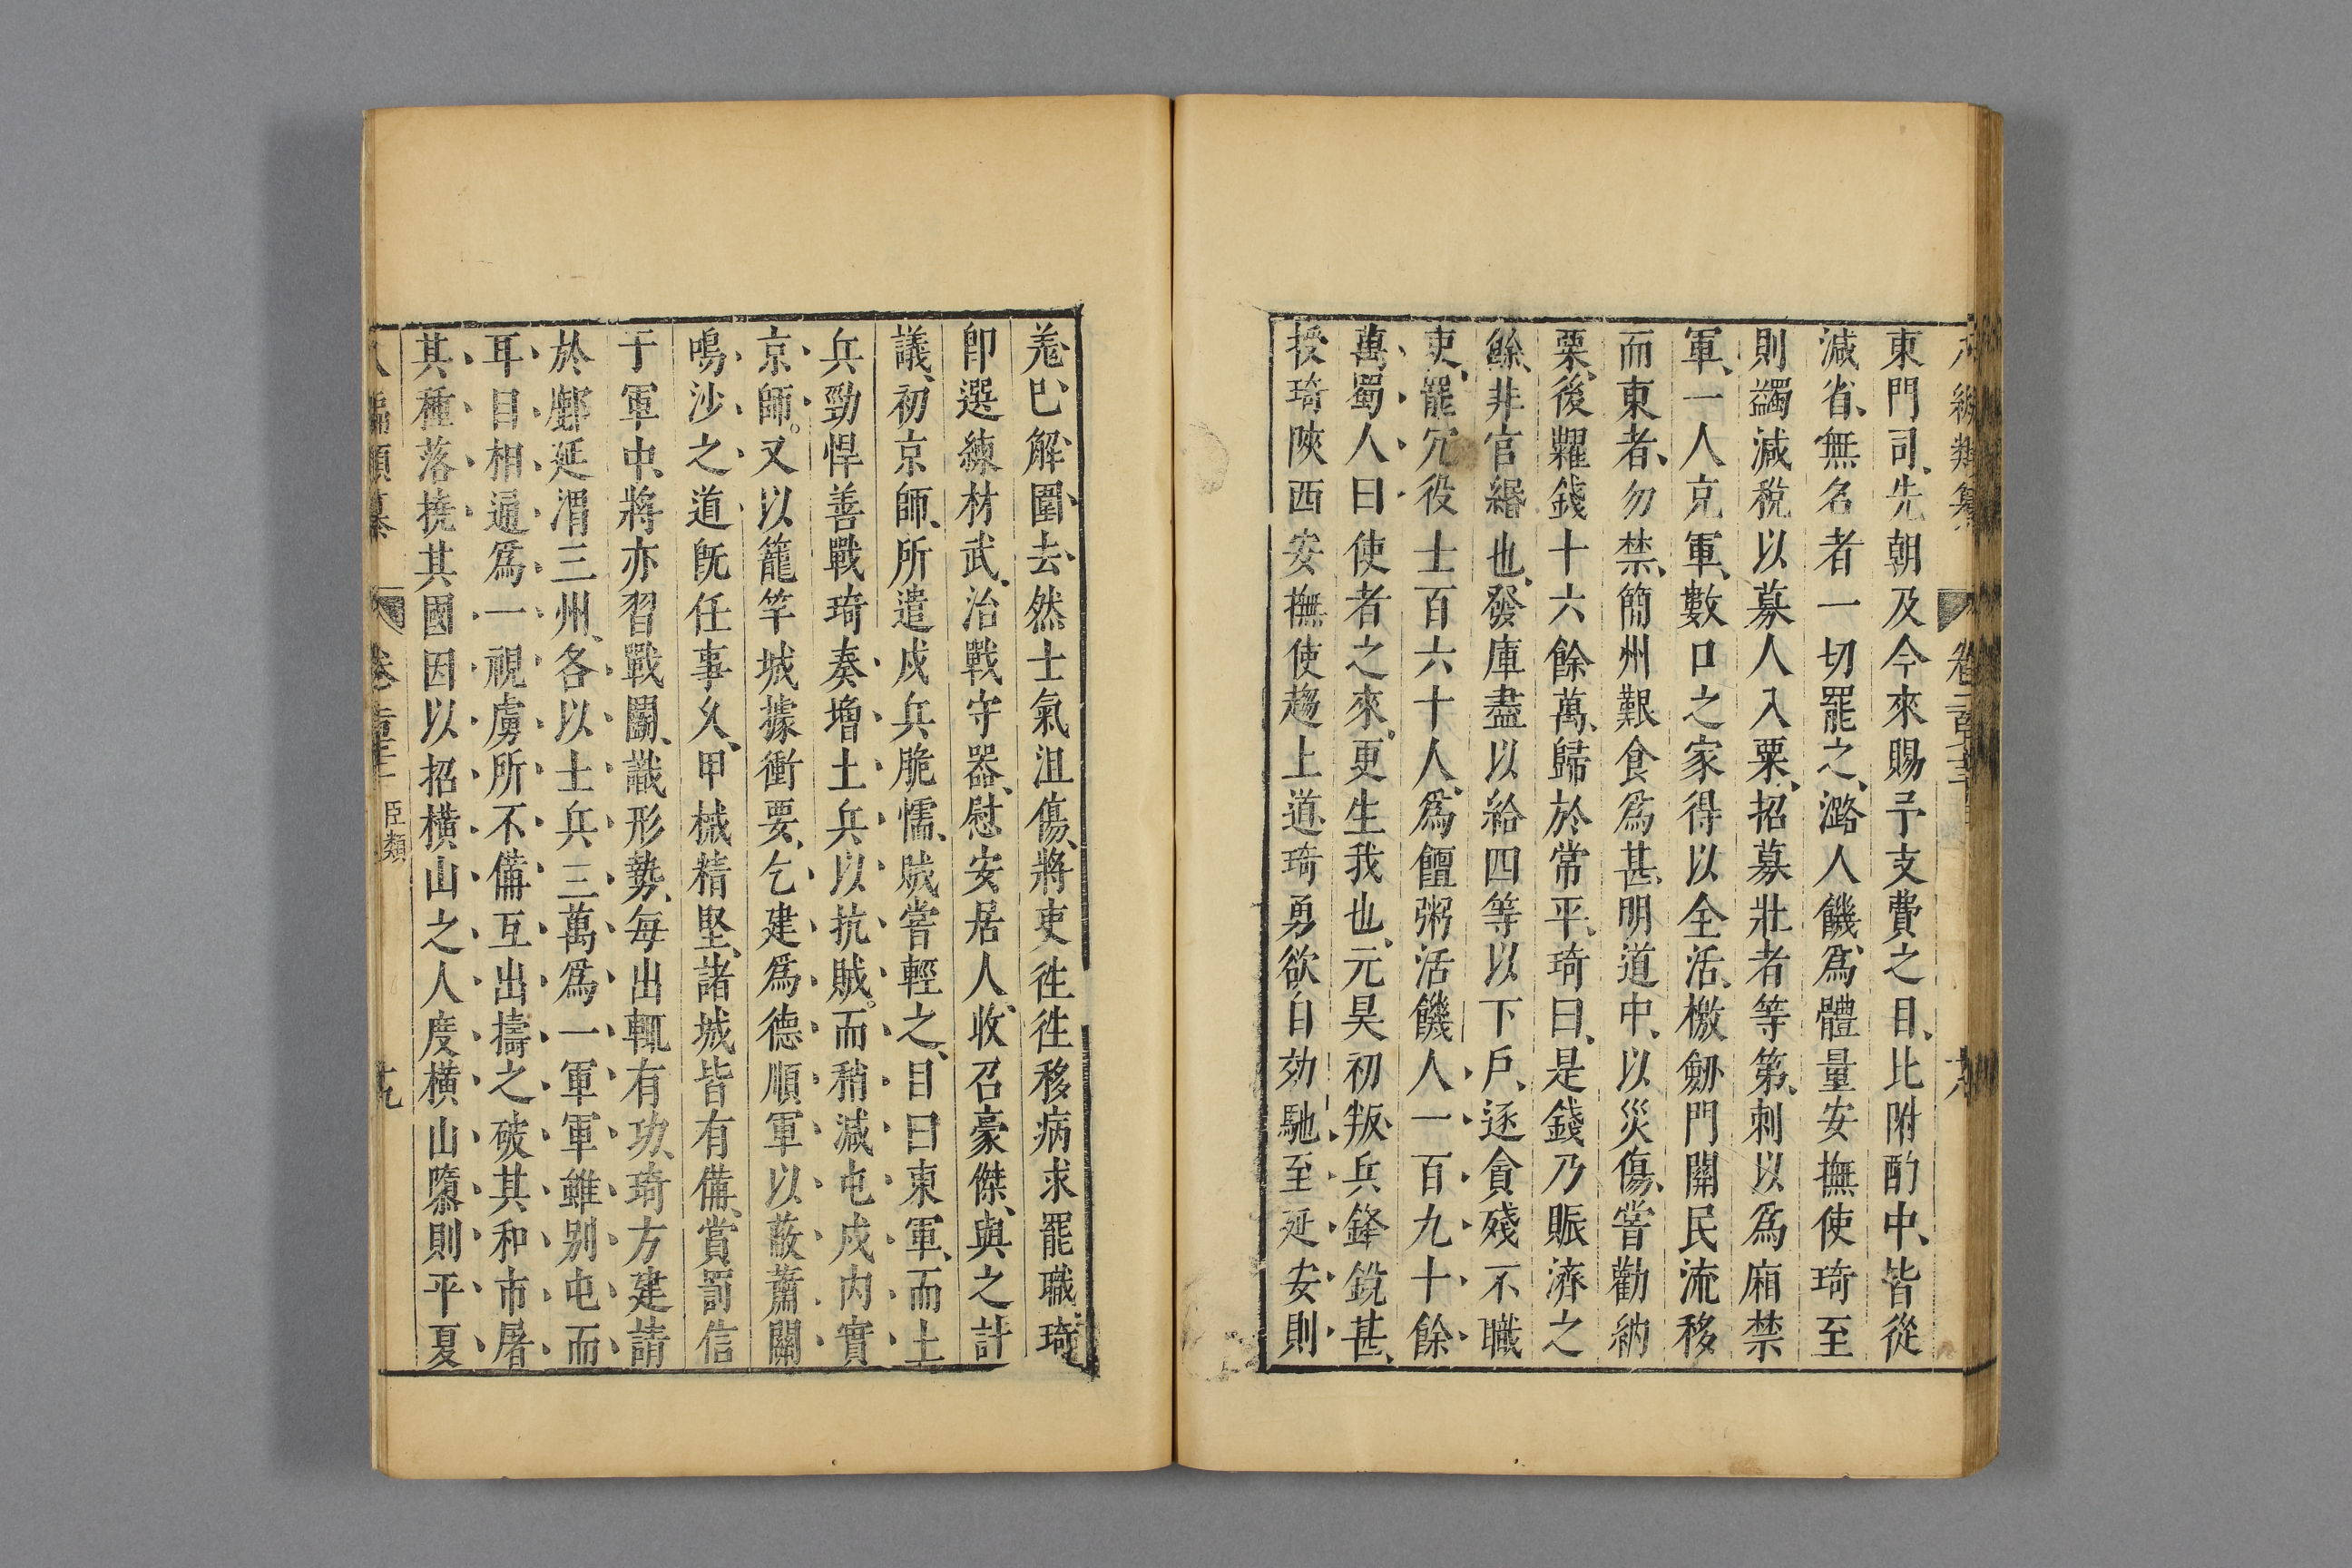 東門司、先朝及今來賜予支費之目、比附酌中、皆從
減省、無名者一切罷之、潞人饑、爲體量安撫使琦至
則蠲減稅以募人入粟、招募壯者等第、刺以爲廂禁
軍、一人克軍、數口之家得以全活、檄劒門關民流移
而東者、勿禁、簡州艱食爲甚、明道中、以災傷、嘗勸納
粟、後糶錢十六餘萬、歸於常平、琦曰、是錢乃賑濟之
餘、非官緡也、發庫盡以給四等以下戶、逐貪殘不職
吏、罷冗役士百六十人、爲饘粥活饑人一百九十餘
萬、蜀人曰使者之來、更生我也、元昊初叛、兵鋒銳甚、
授琦陝西安撫使趨上道、琦勇欲自効、馳至延安、則
羗已解圍去、然士氣沮傷、將吏徃徃移病求罷職、琦
卽選練材武、治戰守器、慰安居人、收召豪傑、與之計
議、初京師、所遣戍兵脆懦、賊嘗輕之、目曰東軍、而土
兵勁悍善戰琦奏增土兵以抗賊。而稍減屯戍內實
京師。又以籠竿城據衝要、乞建爲德順軍以蔽蕭關
鳴沙之道旣任事久、甲械精堅、諸城皆有備、賞罰信
于軍中、將亦習戰鬬、識形勢、每出輒有功、琦方建請
於鄜延渭三州、各以土兵三萬爲一軍軍雖別屯而
耳目相通爲一視虜所不備互出擣之破其和市屠
其種落撓其國因以招橫山之人度橫山隳則平夏
卷
臣類